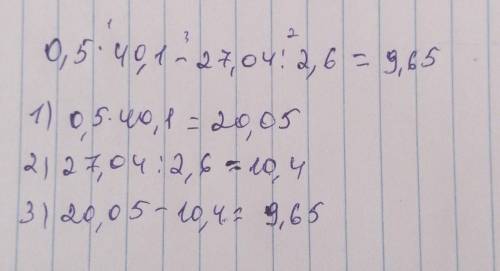 1 3 2
0,5 · 40,1 - 27,04 : 2,6 = 9,65
1) 0,5 · 40,1 = 20,05
2) 27,04 : 2,6 = 10,4
3) 20,05 - 10,4 = 9,65